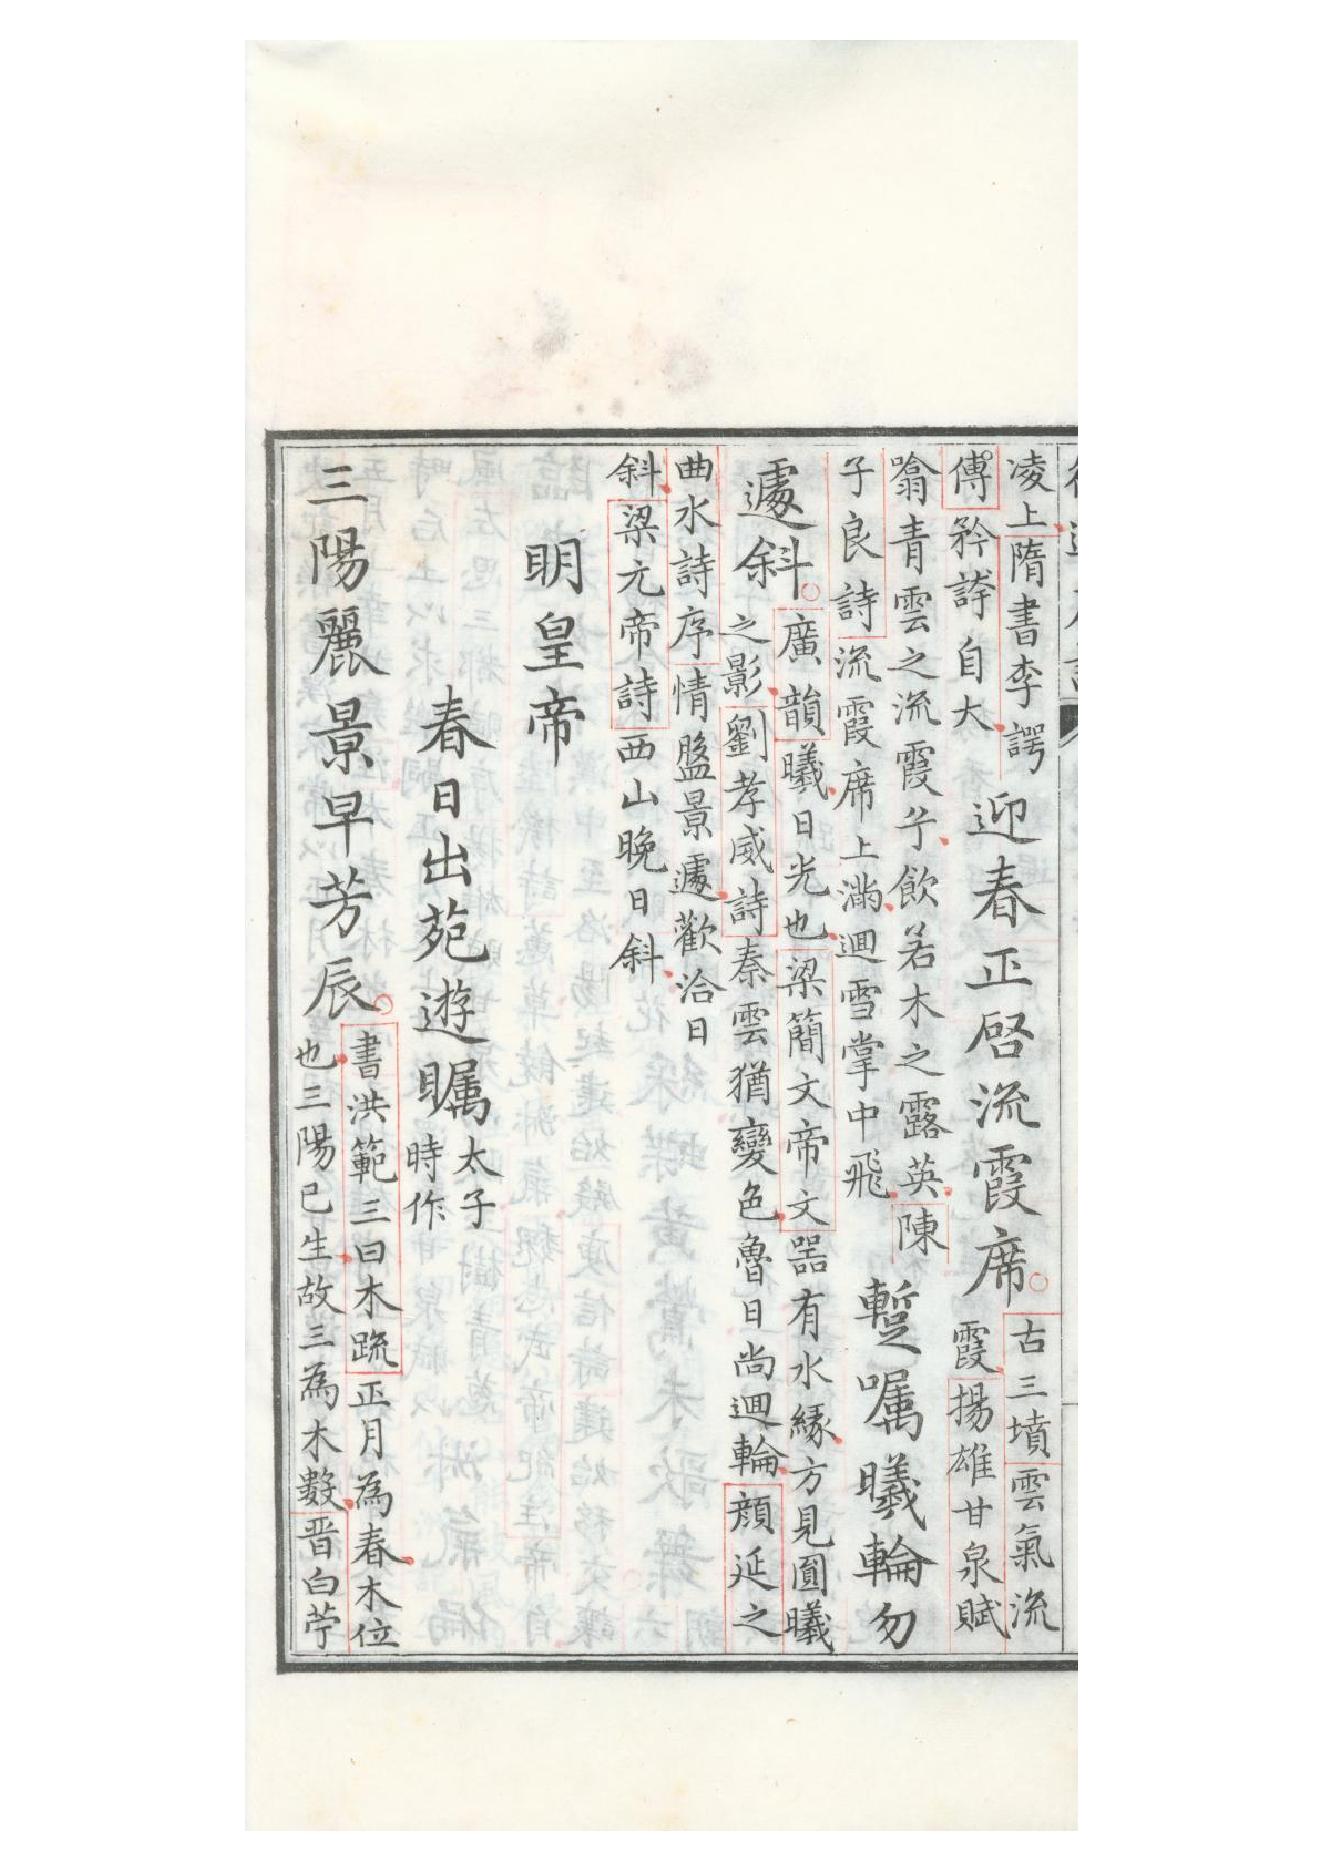 凌上隋書李諤
傅矜誇自大
迎春正啓流霞席
古三墳雲氣流
霞揚雄甘泉賦
噏青雲之流霞兮飲若木之露英陳
子良詩流霞席上滿迴雪掌中飛
蹔囑曦輪勿
遽斜
廣韻曦日光也梁簡文帝文噐有水緣方見圓曦
之影劉孝威詩秦雲猶變色魯日尚迴輪顔延之
曲水詩序情盤景遽歡洽日
斜梁元帝詩西山晚日斜
明皇帝
春日出苑遊矚
太子
時作
三陽麗景早芳辰
書洪範三曰木䟽正月為春木位
也三陽已生故三為木數晋白苧